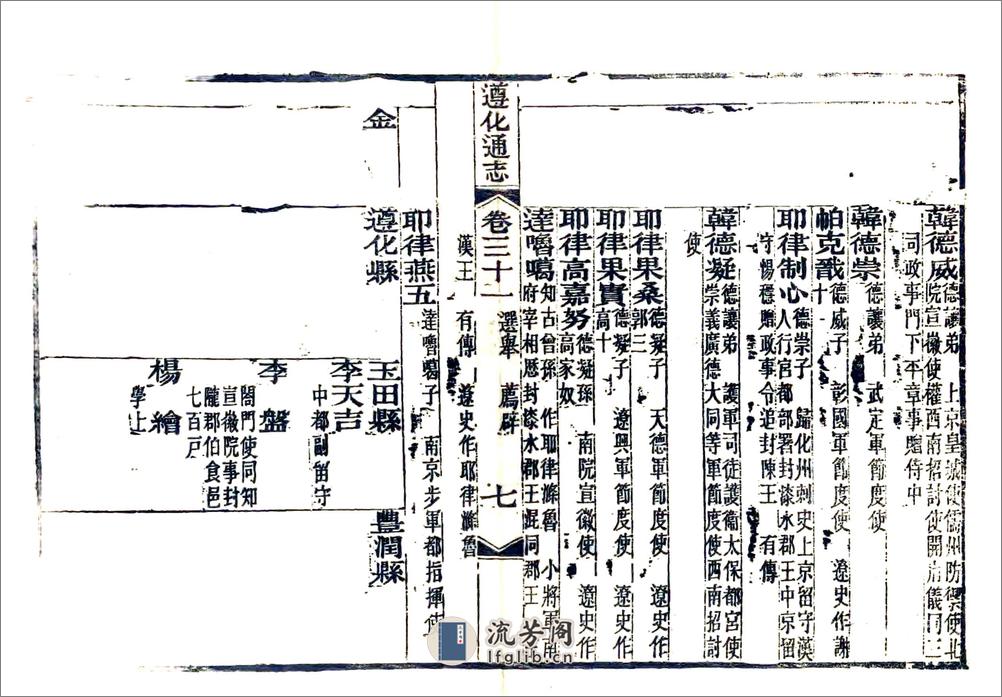 韓德威 德讓弟 上京皇城使儒州防禦使北
院宣徽使權西南招討使開府儀同三
司政事門下平章事贈侍中
韓德崇 德讓弟 武定軍節度使
帕克戬 德威子 彰國軍節度使 遼史作謝
十
耶律制心 德崇子 歸化州刺史上京留守漢
人行宮都部署封漆水郡王中京留
守惕穩贈政事令追封陳王 有傳
韓德凝 德讓弟 護軍司徒護衛太保都宮使
崇義廣德大同等軍節度使西南招討
使
耶律果桑 德凝子 天德軍節度使 遼史作
郭三
耶律果實 德凝子 遼興軍節度使 遼史作
高十
耶律高嘉努 德凝孫 南院宣徽使 遼史作
高家奴
達嚕噶 知古曾孫 作耶律滌魯 小將軍南
府宰相歷封漆水郡王混同郡王
漢王 有傳 遼史作耶律滌魯
耶律燕五 達嚕噶子 南京步軍都指揮使
遵化通志
卷三十一 選舉 薦辟
七
金
遵化縣
玉田縣
豐潤縣
李天吉
中都副留守
李盤
閤門使同知
宣徽院事封
隴郡伯食邑
七百戶
楊繪
學士
流芳阁
lfglib.cn